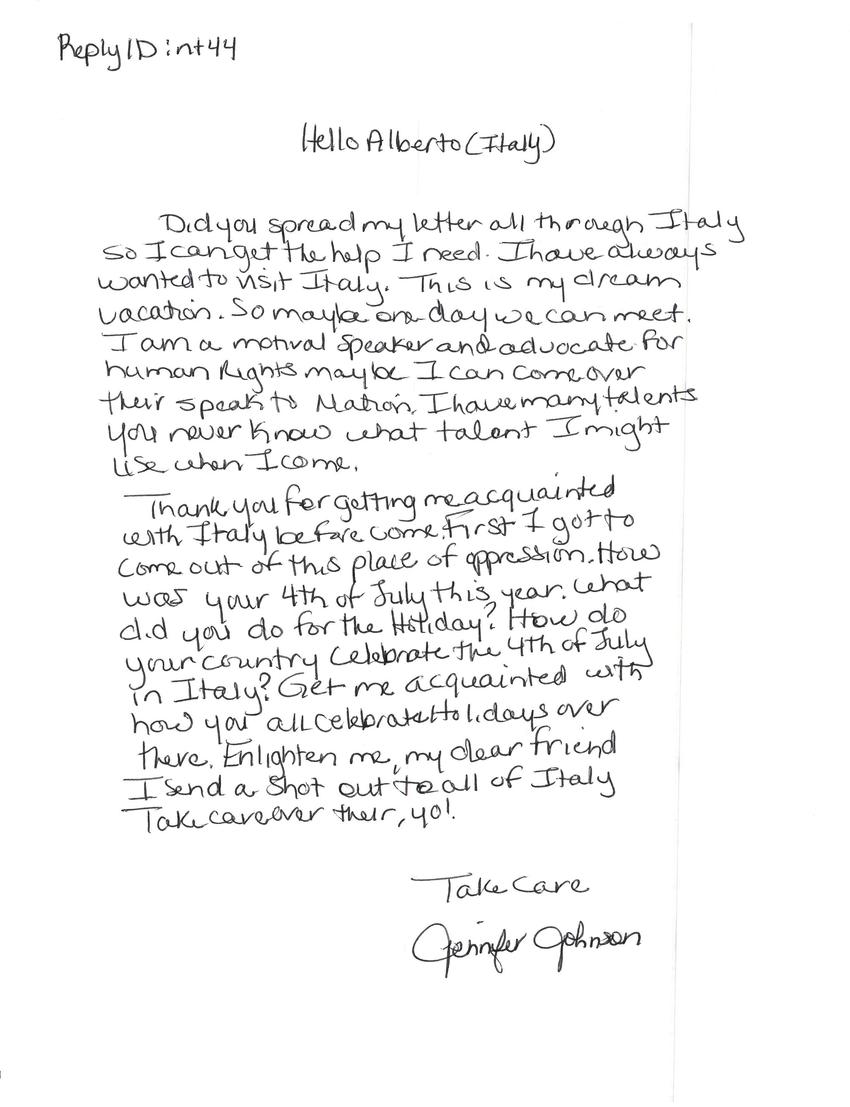 Reply ID: nt44
Hello Alberto (Italy)
Did you spread my letter all through Italy
so I can get the help I need. I have always
wanted to visit Italy. This is my dream
vacation. So maybe one day we can meet.
I am a motival speaker and advocate for
human Rights maybe I can come over
their speak to Nation. I have many talents
you never know what talent I might
use when I come.
Thank you for getting me acquainted
with Italy before come. First I got to
come out of this place of oppression. How
was your 4th of July this year. What
did you do for the Holiday? How do
your country celebrate the 4th of July
in Italy? Get me acquainted with
how you all celebrate Holidays over
there. Enlighten me, my dear friend
I send a shot out to all of Italy
Take care over their, yo!
Take Care
Jennifer Johnson